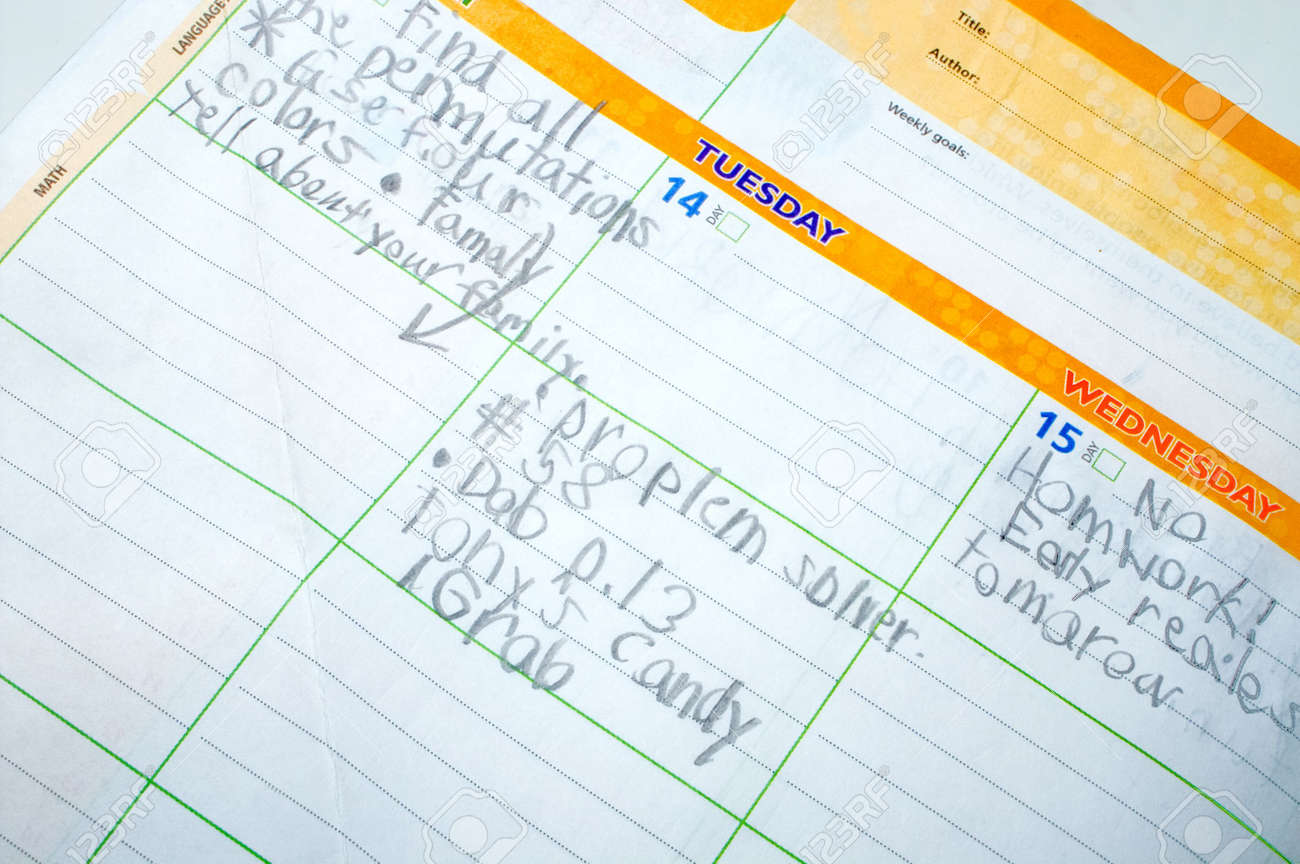 Title:
Author:
Weekly goals:
LANGUAGE
MATH
Find all
the permutations
* (use four)
colors • famaly
tell about your family.
TUESDAY
14 DAY
• proplem solver.
# 58
• Dab p.13
Tony's Candy
1 Grab
WEDNESDAY
15 DAY
No
Homwork!
Early
tomarow